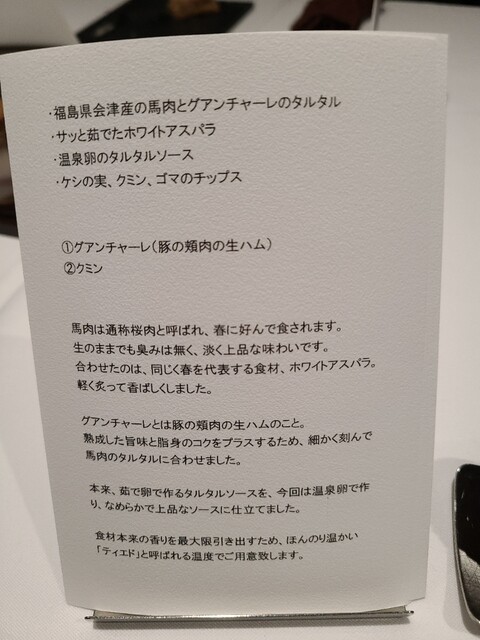 ・福島県会津産の馬肉とグアンチャーレのタルタル
・サッと茹でたホワイトアスパラ
・温泉卵のタルタルソース
・ケシの実、クミン、ゴマのチップス
①グアンチャーレ(豚の頬肉の生ハム)
②クミン
馬肉は通称桜肉と呼ばれ、春に好んで食されます。
生のままでも臭みは無く、淡く上品な味わいです。
合わせたのは、同じく春を代表する食材、ホワイトアスパラ。
軽く炙って香ばしくしました。
グアンチャーレとは豚の頬肉の生ハムのこと。
熟成した旨味と脂身のコクをプラスするため、細かく刻んで
馬肉のタルタルに合わせました。
本来、茹で卵で作るタルタルソースを、今回は温泉卵で作
り、なめらかで上品なソースに仕立てました。
食材本来の香りを最大限引き出すため、ほんのり温かい
「ティエド」と呼ばれる温度でご用意致します。